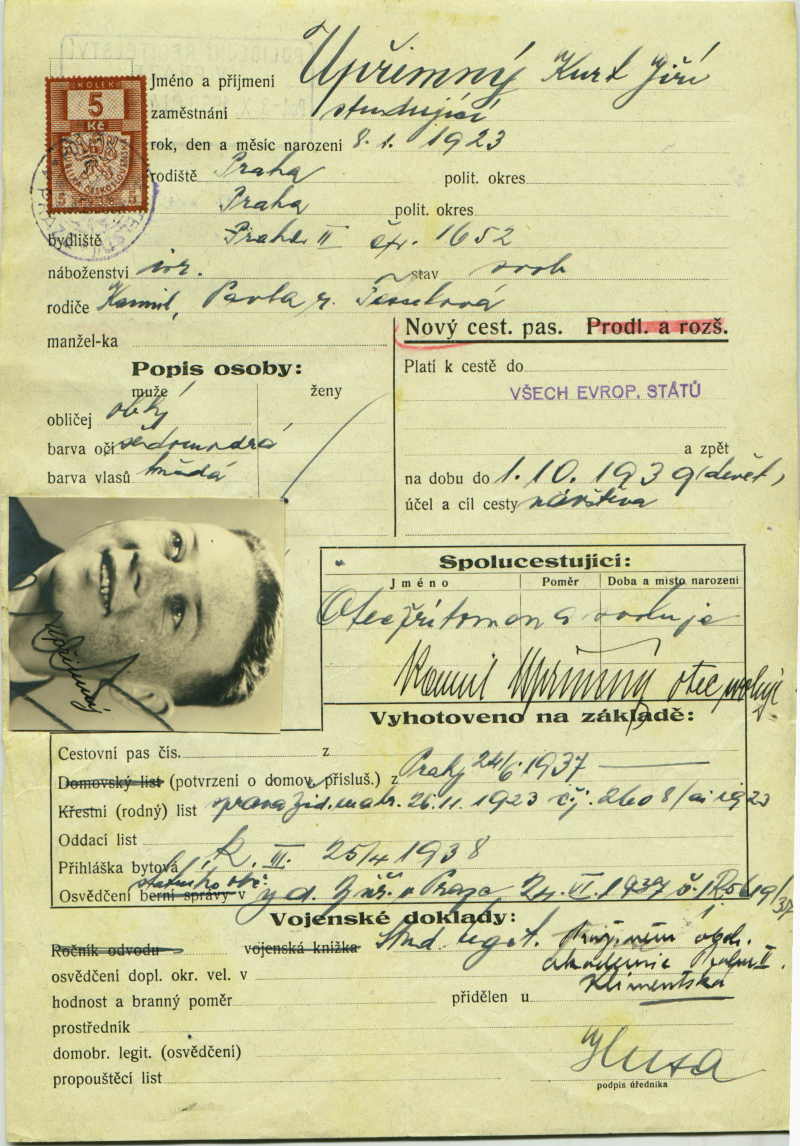 KOLEK
5
Kč
Jméno a příjmení Upřimný Kurt Jiří
zaměstnání studující
rok, den a měsíc narození 8. 1. 1923
rodiště Praha polit. okres
Praha polit. okres
bydliště Praha II čp. 1652
náboženství isr. stav svob
rodiče Kamil, Pavla r.
manžel-ka
Nový cest. pas. Prodl. a rozš.
Popis osoby:
muže ženy
Platí k cestě do
VŠECH EVROP. STÁTŮ
obličej
barva očí šedomodrá
barva vlasů hnědá
a zpět
na dobu do 1. 10. 1939 (devět)
účel a cíl cesty návštěva
Upřimný
Spolucestující:
Jméno Poměr Doba a místo narození
Otec přítomen a svoluje
Kamil Upřimný otec svoluji
Vyhotoveno na základě:
Cestovní pas čís. z
Domovský list (potvrzení o domov. přísluš.) z Prahy 24/6 1937
Křestní (rodný) list 26. 11. 1923 čj. 2608/ 1923
Oddací list
Přihláška bytová R. III. 25/4 1938
státního obč.
Osvědčení berní správy v Praze 24. VI. 1937
Vojenské doklady:
Ročník odvodu vojenská knížka Stud. legit.
akademie
osvědčení dopl. okr. vel. v
Klimentská
hodnost a branný poměr přidělen u
prostředník
domobr. legit. (osvědčení)
propouštěcí list
Husa
podpis úředníka